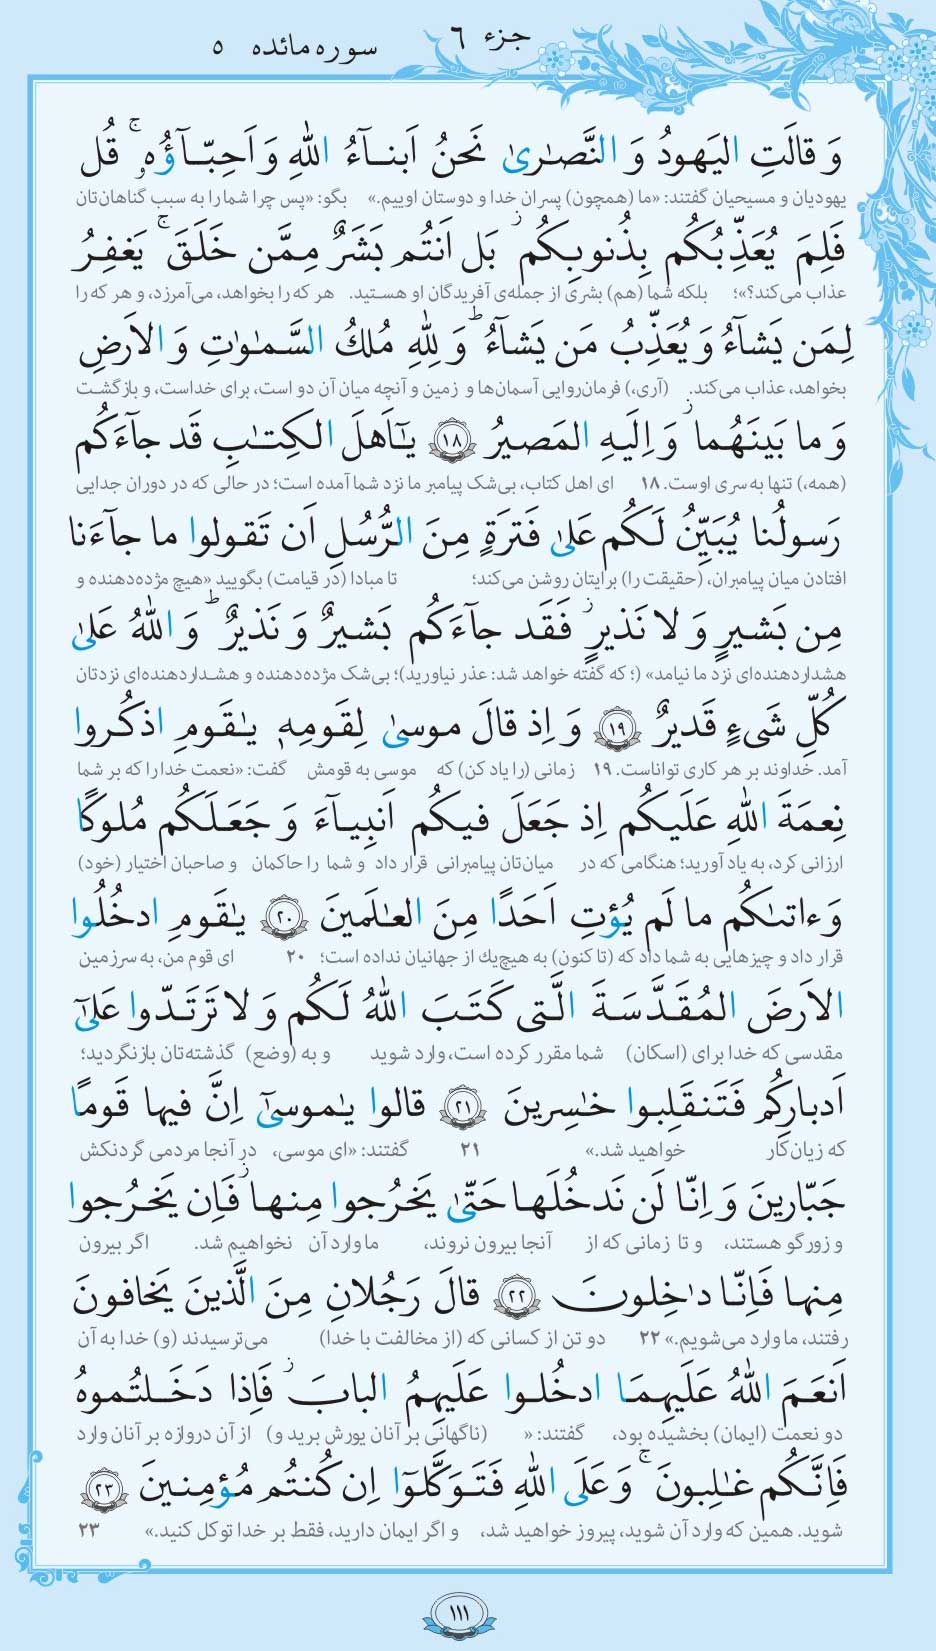 جزء ۶
سوره مائده ۵
وَ قالَتِ الیَهودُ وَ النَّصٰریٰ نَحنُ اَبنـآءُ اللهِ وَ اَحِبّـآؤُهٖ ۚ قُل
یهودیان و مسیحیان گفتند: «ما (همچون) پسران خدا و دوستان اوییم.» بگو: «پس چرا شما را به سبب گناهان‌تان
فَلِمَ یُعَذِّبُکُم بِذُنوبِکُم ۖ بَل اَنتُم بَشَرٌ مِمَّن خَلَقَ ۚ یَغفِرُ
عذاب می‌کند؟»؛ بلکه شما (هم) بشری از جمله‌ی آفریدگان او هستید. هر که را بخواهد، می‌آمرزد، و هر که را
لِمَن یَشآءُ وَ یُعَذِّبُ مَن یَشآءُ ؕ وَ لِلّٰهِ مُلكُ السَّمٰوٰتِ وَ الاَرضِ
بخواهد، عذاب می‌کند. (آری،) فرمان‌روایی آسمان‌ها و زمین و آنچه میان آن دو است، برای خداست، و بازگشت
وَ ما بَینَهُما ۖ وَ اِلَیهِ المَصیرُ ۱۸ یـٰۤاَهلَ الکِتـٰبِ قَد جآءَکُم
(همه،) تنها به‌سری اوست. ۱۸ ای اهل کتاب، بی‌شک پیامبر ما نزد شما آمده است؛ در حالی که در دوران جدایی
رَسولُنا یُبَیِّنُ لَکُم عَلیٰ فَترَةٍ مِنَ الرُّسُلِ اَن تَقولوا ما جآءَنا
افتادن میان پیامبران، (حقیقت را) برایتان روشن می‌کند؛ تا مبادا (در قیامت) بگویید «هیچ مژده‌دهنده و
مِن بَشیرٍ وَ لا نَذیرٍ ۖ فَقَد جآءَکُم بَشیرٌ وَ نَذیرٌ ؕ وَ اللهُ عَلیٰ
هشداردهنده‌ای نزد ما نیامد» (؛ که گفته خواهد شد: عذر نیاورید)؛ بی‌شک مژده‌دهنده و هشداردهنده‌ای نزدتان
کُلِّ شَیءٍ قَدیرٌ ۱۹ وَ اِذ قالَ موسیٰ لِقَومِهٖ یـٰقَومِ اذکُروا
آمد. خداوند بر هر کاری تواناست. ۱۹ زمانی (را یاد کن) که موسی به قومش گفت: «نعمت خدا را که بر شما
نِعمَةَ اللهِ عَلَیکُم اِذ جَعَلَ فیکُم اَنبِیـآءَ وَ جَعَلَکُم مُلوکًا
ارزانی کرد، به یاد آورید؛ هنگامی که در میان‌تان پیامبرانی قرار داد و شما را حاکمان و صاحبان اختیار (خود)
وَ ءاتىٰکُم ما لَم یُؤتِ اَحَدًا مِنَ العٰلَمینَ ۲۰ یـٰقَومِ ادخُلُوا
قرار داد و چیزهایی به شما داد که (تا کنون) به هیچ‌یك از جهانیان نداده است؛ ۲۰ ای قوم من، به سرزمین
الاَرضَ المُقَدَّسَةَ الَّتی کَتَبَ اللهُ لَکُم وَ لا تَرتَدّوا عَلیٰۤ
مقدسی که خدا برای (اسکان) شما مقرر کرده است، وارد شوید و به (وضع) گذشته‌تان بازنگردید؛
اَدبارِکُم فَتَنقَلِبوا خٰسِرینَ ۲۱ قالوا یـٰموسیٰۤ اِنَّ فیها قَومًا
که زیان‌کار خواهید شد.» ۲۱ گفتند: «ای موسی، در آنجا مردمی گردنکش
جَبّارینَ وَ اِنّا لَن نَدخُلَها حَتّیٰ یَخرُجوا مِنها ۖ فَاِن یَخرُجوا
و زورگو هستند، و تا زمانی که از آنجا بیرون نروند، ما وارد آن نخواهیم شد. اگر بیرون
مِنها فَاِنّا دٰخِلونَ ۲۲ قالَ رَجُلانِ مِنَ الَّذینَ یَخافونَ
رفتند، ما وارد می‌شویم.» ۲۲ دو تن از کسانی که (از مخالفت با خدا) می‌ترسیدند (و) خدا به آن
اَنعَمَ اللهُ عَلَیهِمَا ادخُلوا عَلَیهِمُ البابَ ۖ فَاِذا دَخَلتُموهُ
دو نعمت (ایمان) بخشیده بود، گفتند: « (ناگهانی بر آنان یورش برید و) از آن دروازه بر آنان وارد
فَاِنَّکُم غٰلِبونَ ۚ وَ عَلَی اللهِ فَتَوَکَّلوۤا اِن کُنتُم مُؤمِنینَ ۲۳
شوید. همین که وارد آن شوید، پیروز خواهید شد، و اگر ایمان دارید، فقط بر خدا توکل کنید.» ۲۳
۱۱۱